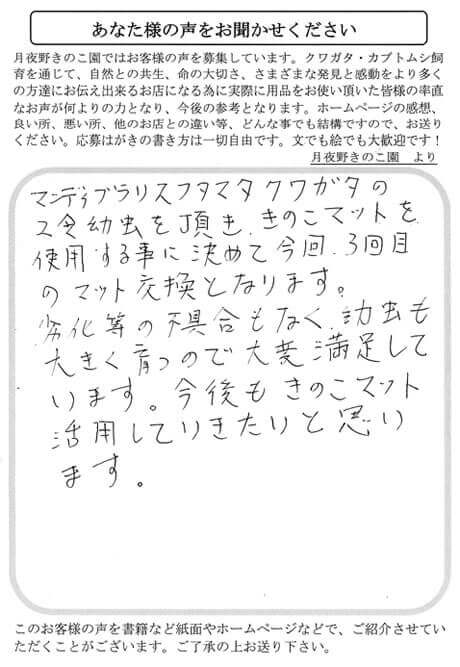 あなた様の声をお聞かせください
月夜野きのこ園ではお客様の声を募集しています。クワガタ・カブトムシ飼
育を通じて、自然との共生、命の大切さ、さまざまな発見と感動をより多く
の方達にお伝え出来るお店になる為に実際に用品をお使い頂いた皆様の率直
なお声が何よりの力となり、今後の参考となります。ホームページの感想、
良い所、悪い所、他のお店との違い等、どんな事でも結構ですので、お送り
ください。応募はがきの書き方は一切自由です。文でも絵でも大歓迎です！
月夜野きのこ園　より
マンディブラリスフタマタクワガタの
2令幼虫を頂き、きのこマットを
使用する事に決めて今回、3回目
のマット交換となります。
劣化等の不具合もなく、幼虫も
大きく育つので大変満足して
います。今後もきのこマット
活用していきたいと思い
ます。
このお客様の声を書籍など紙面やホームページなどで、ご紹介させてい
ただくことがございます。ご了承の上お送り下さい。